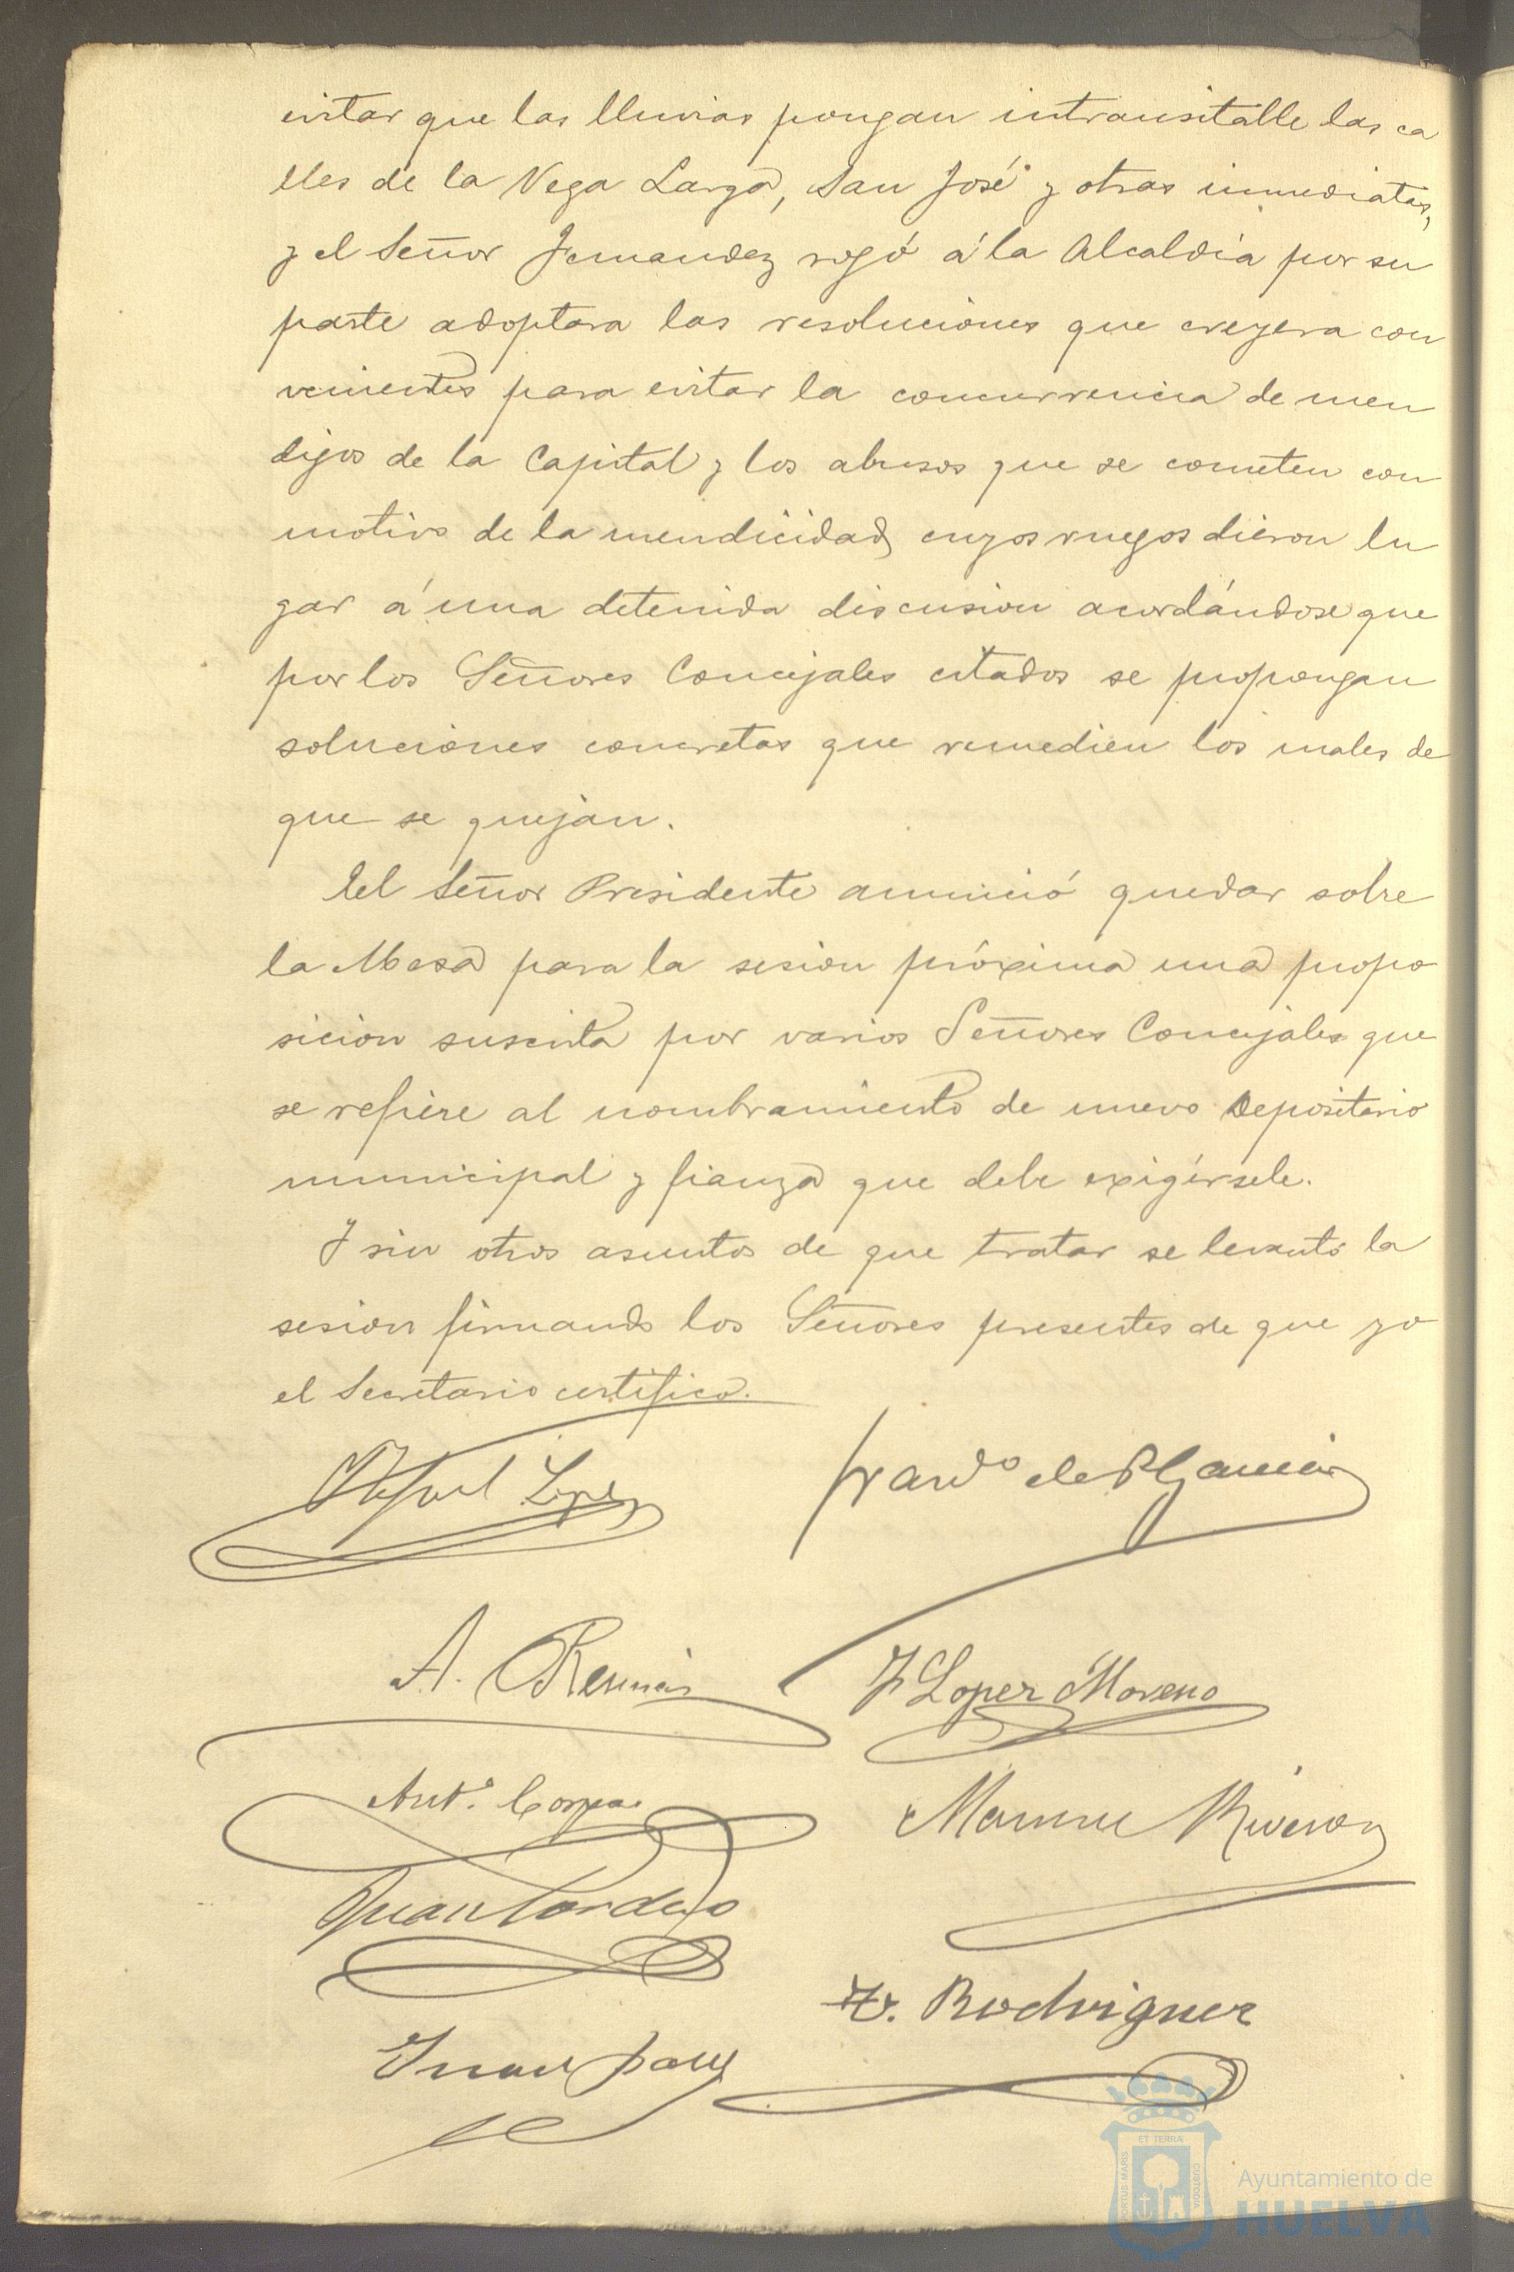 evitar que las lluvias pongan intransitable las ca
lles de la Vega Larga, San José y otras inmediatas,
y el Señor Fernandez rogó á la Alcaldia por su
parte adoptara las resoluciones que creyera con
venientes para evitar la concurrencia de men
digos de la Capital y los abusos que se cometen con
motivo de la mendicidad, cuyos ruegos dieron lu
gar á una detenida discusion acordándose que
por los Señores Concejales citados se propongan
soluciones concretas que remedien los males de
que se quejan.
El Señor Presidente anunció quedar sobre
la Mesa para la sesion próxima una propo
sicion suscrita por varios Señores Concejales que
se refiere al nombramiento de nuevo Depositario
municipal y fianza que debe exigírsele.
Y sin otros asuntos de que tratar se levantó la
sesion firmando los Señores presentes de que yo
el Secretario certifico.
Rafael Lopez
de P Garcia
A.
F Lopez Moreno
Antº. Corpas
Manuel
Juan Cordero
F. Rodriguez
Juan
PORTUS MARIS
ET TERRA
CUSTODIA
Ayuntamiento de
HUELVA